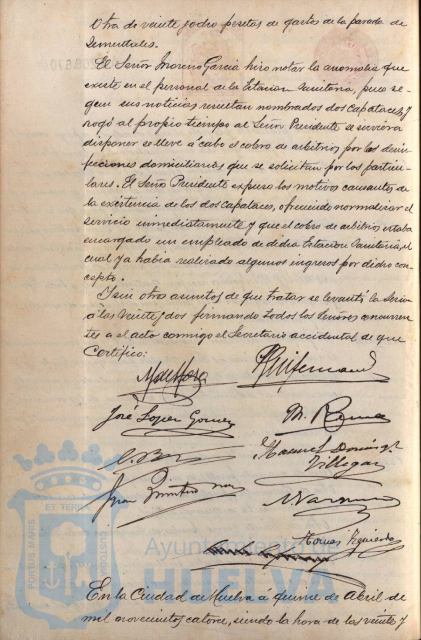 Otra de veinte y ocho pesetas de gastos de la parada de
Sementales.
El Señor Moreno García hizo notar la anomalia que
existe en el personal de la Estacion Sanitaria, pues se-
gun sus noticias resultan nombrados dos Capataces y
rogó al propio tiempo al Señor Presidente se sirviera
disponer se lleve a cabo el cobro de arbitrios por las desin-
fecciones domiciliarias que se solicitan por los particu-
lares. El Señor Presidente expuso los motivos causantes de
la existencia de los dos Capataces, ofreciendo normalizar el
servicio inmediatamente y que el cobro de arbitrios estaba
encargado un empleado de dicha Estacion Sanitaria, el
cual ya habia realizado algunos ingresos por dicho con-
cepto.
Y sin otros asuntos de que tratar se levantó la Sesion
a las veinte y dos firmando todos los Señores concurren-
tes a el acto conmigo el Secretario accidental de que
Certifico:
José Lopez Gomez
Manuel Doming
Villegas
Juan Quintero
Tomas Izquierdo
ET TERRÆ
PORTUS MARIS
CUSTODIA
Ayuntamiento de
HUELVA
En la Ciudad de Huelva a quince de Abril de
mil novecientos catorce, siendo la hora de las veinte y